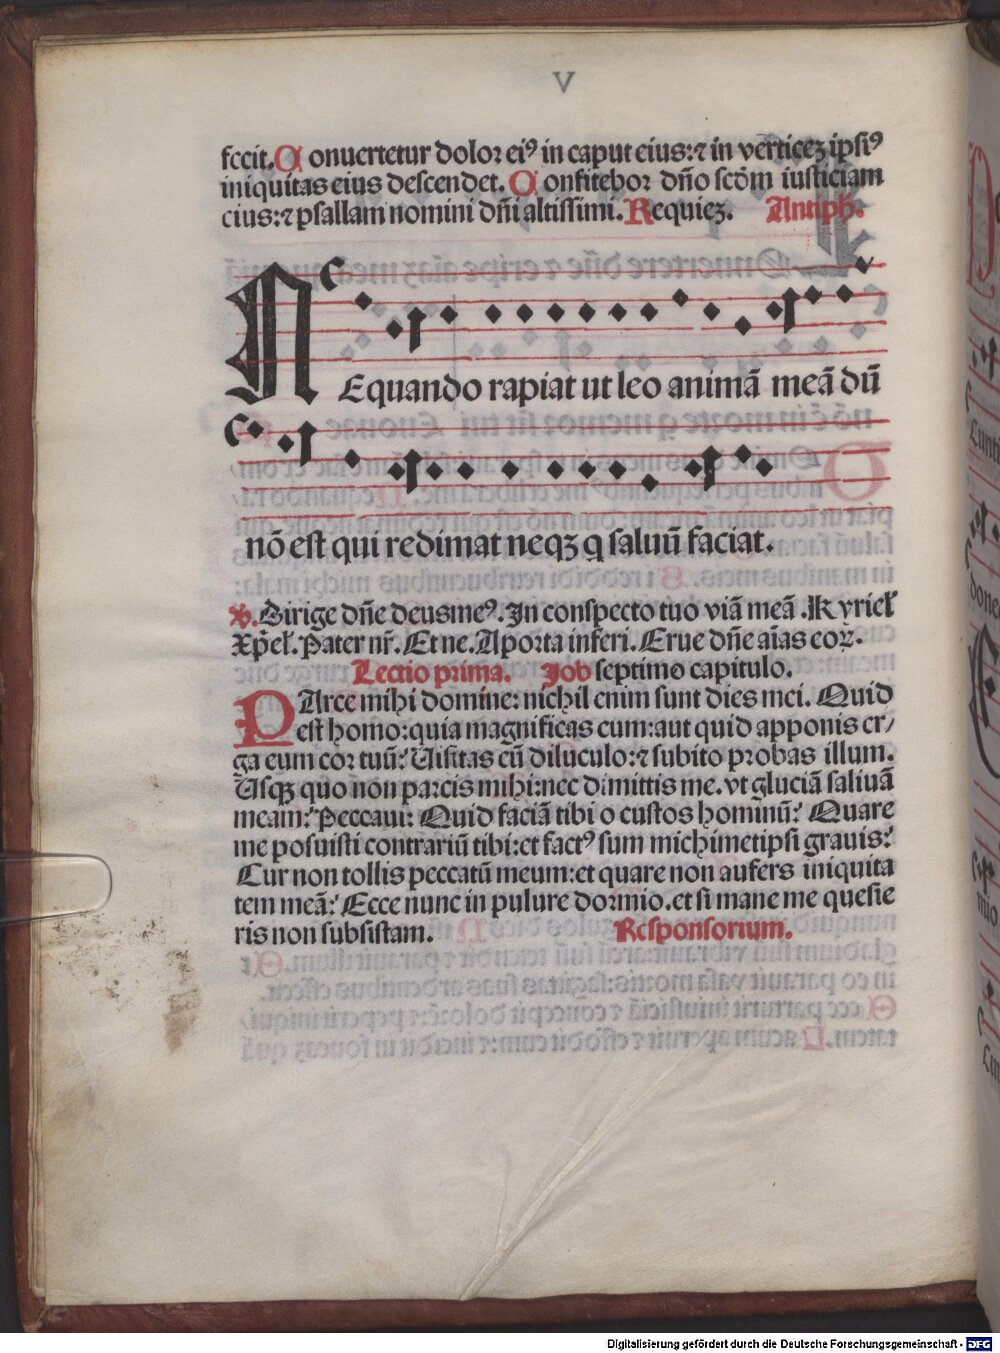 V
fecit. Conuertetur dolor eiꝰ in caput eius: ⁊ in verticeꝫ ipsiꝰ
iniquitas eius descendet. Confitebor dño scōm iusticiam
eius: ⁊ psallam nomini dñi altissimi. Requieꝫ. Antiph.
NEquando rapiat ut leo animā meā dū
nō est qui redimat neqꝫ q saluū faciat.
℣. Dirige dñe deusmeꝰ. In conspecto tuo viā meā. Kyriel̄
Xp̄el̄. Pater nr̄. Et ne. Aporta inferi. Erue dñe aīas eoꝝ.
Lectio prima. Job septimo capitulo.
PArce mihi domine: nichil enim sunt dies mei. Quid
est homo: quia magnificas eum: aut quid apponis er/
ga eum cor tuū? Uisitas eū diluculo: ⁊ subito probas illum.
Usqꝫ quo non parcis mihi: nec dimittis me. vt gluciā saliuā
meam? Peccaui: Quid faciā tibi o custos hominū? Quare
me posuisti contrariū tibi: et factꝰ sum michimetipsi grauis?
Cur non tollis peccatū meum: et quare non aufers iniquita
tem meā? Ecce nunc in puluere dormio. et si mane me quesie
ris non subsistam. Responsorium.
Digitalisierung gefördert durch die Deutsche Forschungsgemeinschaft - DFG